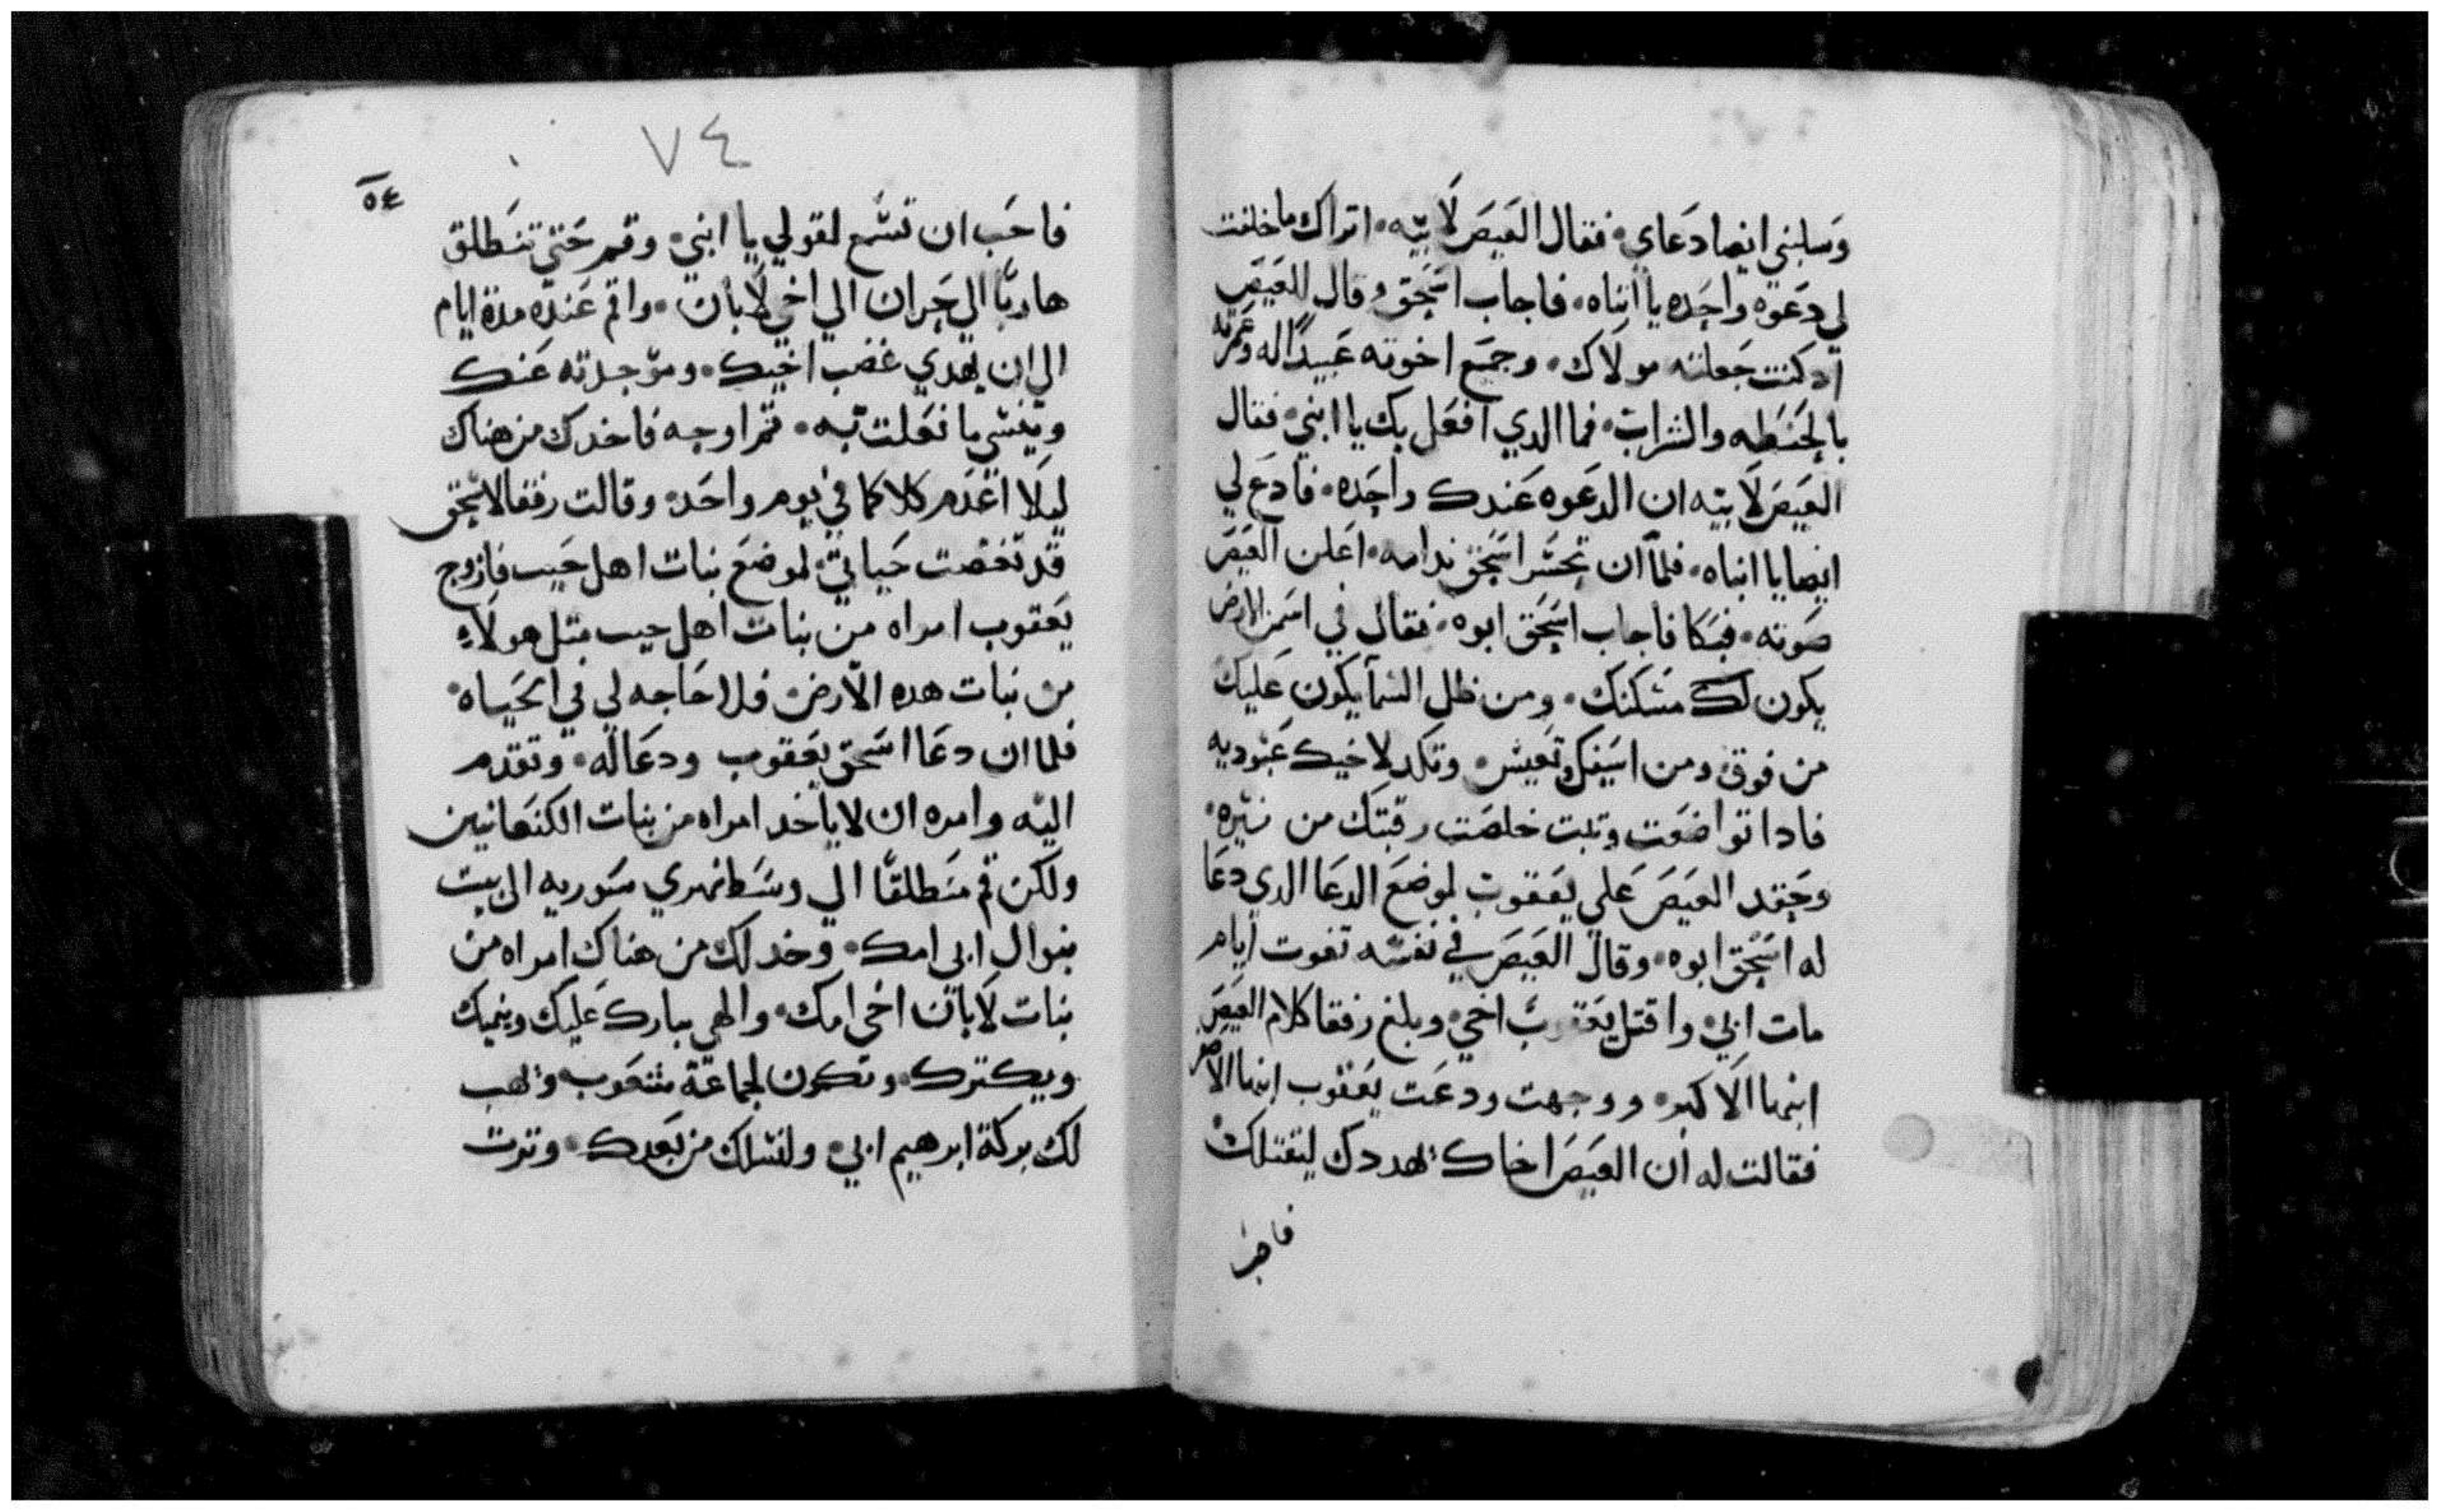 وسلبني ايضا دعاي فقال العيص لابيه اتراك ما خلفت
لي دعوة واحده يا ابتاه فاجاب اسحق وقال للعيص
اد كنت جعلته مولاك وجميع اخوته عبيدا له وعمرته
بالحنطه والشراب فما الدي افعل بك يا ابني فقال
العيص لابيه ان الدعوه عندك واحده فادع لي
ايضا يا ابتاه فلما ان تحسر اسحق ندامه اعلن العيص
صوته فبكا فاجاب اسحق ابوه فقال في اسمن الارض
يكون لك مسكنك ومن ظل السما يكون عليك
من فوق ومن اسيفك تعيش وتكد لاخيك عبوديه
فادا تواضعت وتبت خلصت رقبتك من نيره
وحقد العيص علي يعقوب لموضع الدعا الدي دعا
له اسحق ابوه وقال العيص في نفسه تفوت ايام
مات ابي واقتل يعقوب اخي وبلغ رفقا كلام العيص
ابنها الاكبر ووجهت ودعت يعقوب ابنها الاصغر
فقالت له ان العيص اخاك تهددك ليقتلك
٧٤
٥٤
فاحب ان تسمع لقولي يا ابني وقم حتي تنطلق
هاربا الي حران الي اخي لابان واقم عنده مدة ايام
الي ان يهدي غضب اخيك وموجدته عنك
وينسي ما فعلت به ثم اوجه فاخدك من هناك
ليلا اعدم كلاكما في يوم واحد وقالت رفقا لاسحق
قد تغصت حياتي لموضع بنات اهل حيب فان زوج
يعقوب امراه من بنات اهل حيب مثل هولاء
من بنات هده الارض فلا حاجه لي في الحياه
فلما ان دعا اسحق يعقوب ودعا له وتقدم
اليه وامره ان لا ياخد امراه من بنات الكنعانيين
ولكن قم منطلقا الي وسط نهري سوريه الي بيت
بتوال ابي امك وخد لك من هناك امراه من
بنات لابان اخي امك والهي يبارك عليك وينميك
ويكترك وتكون لجماعة شعوب ويهب
لك بركة ابرهيم ابي ولنسلك من بعدك وترت